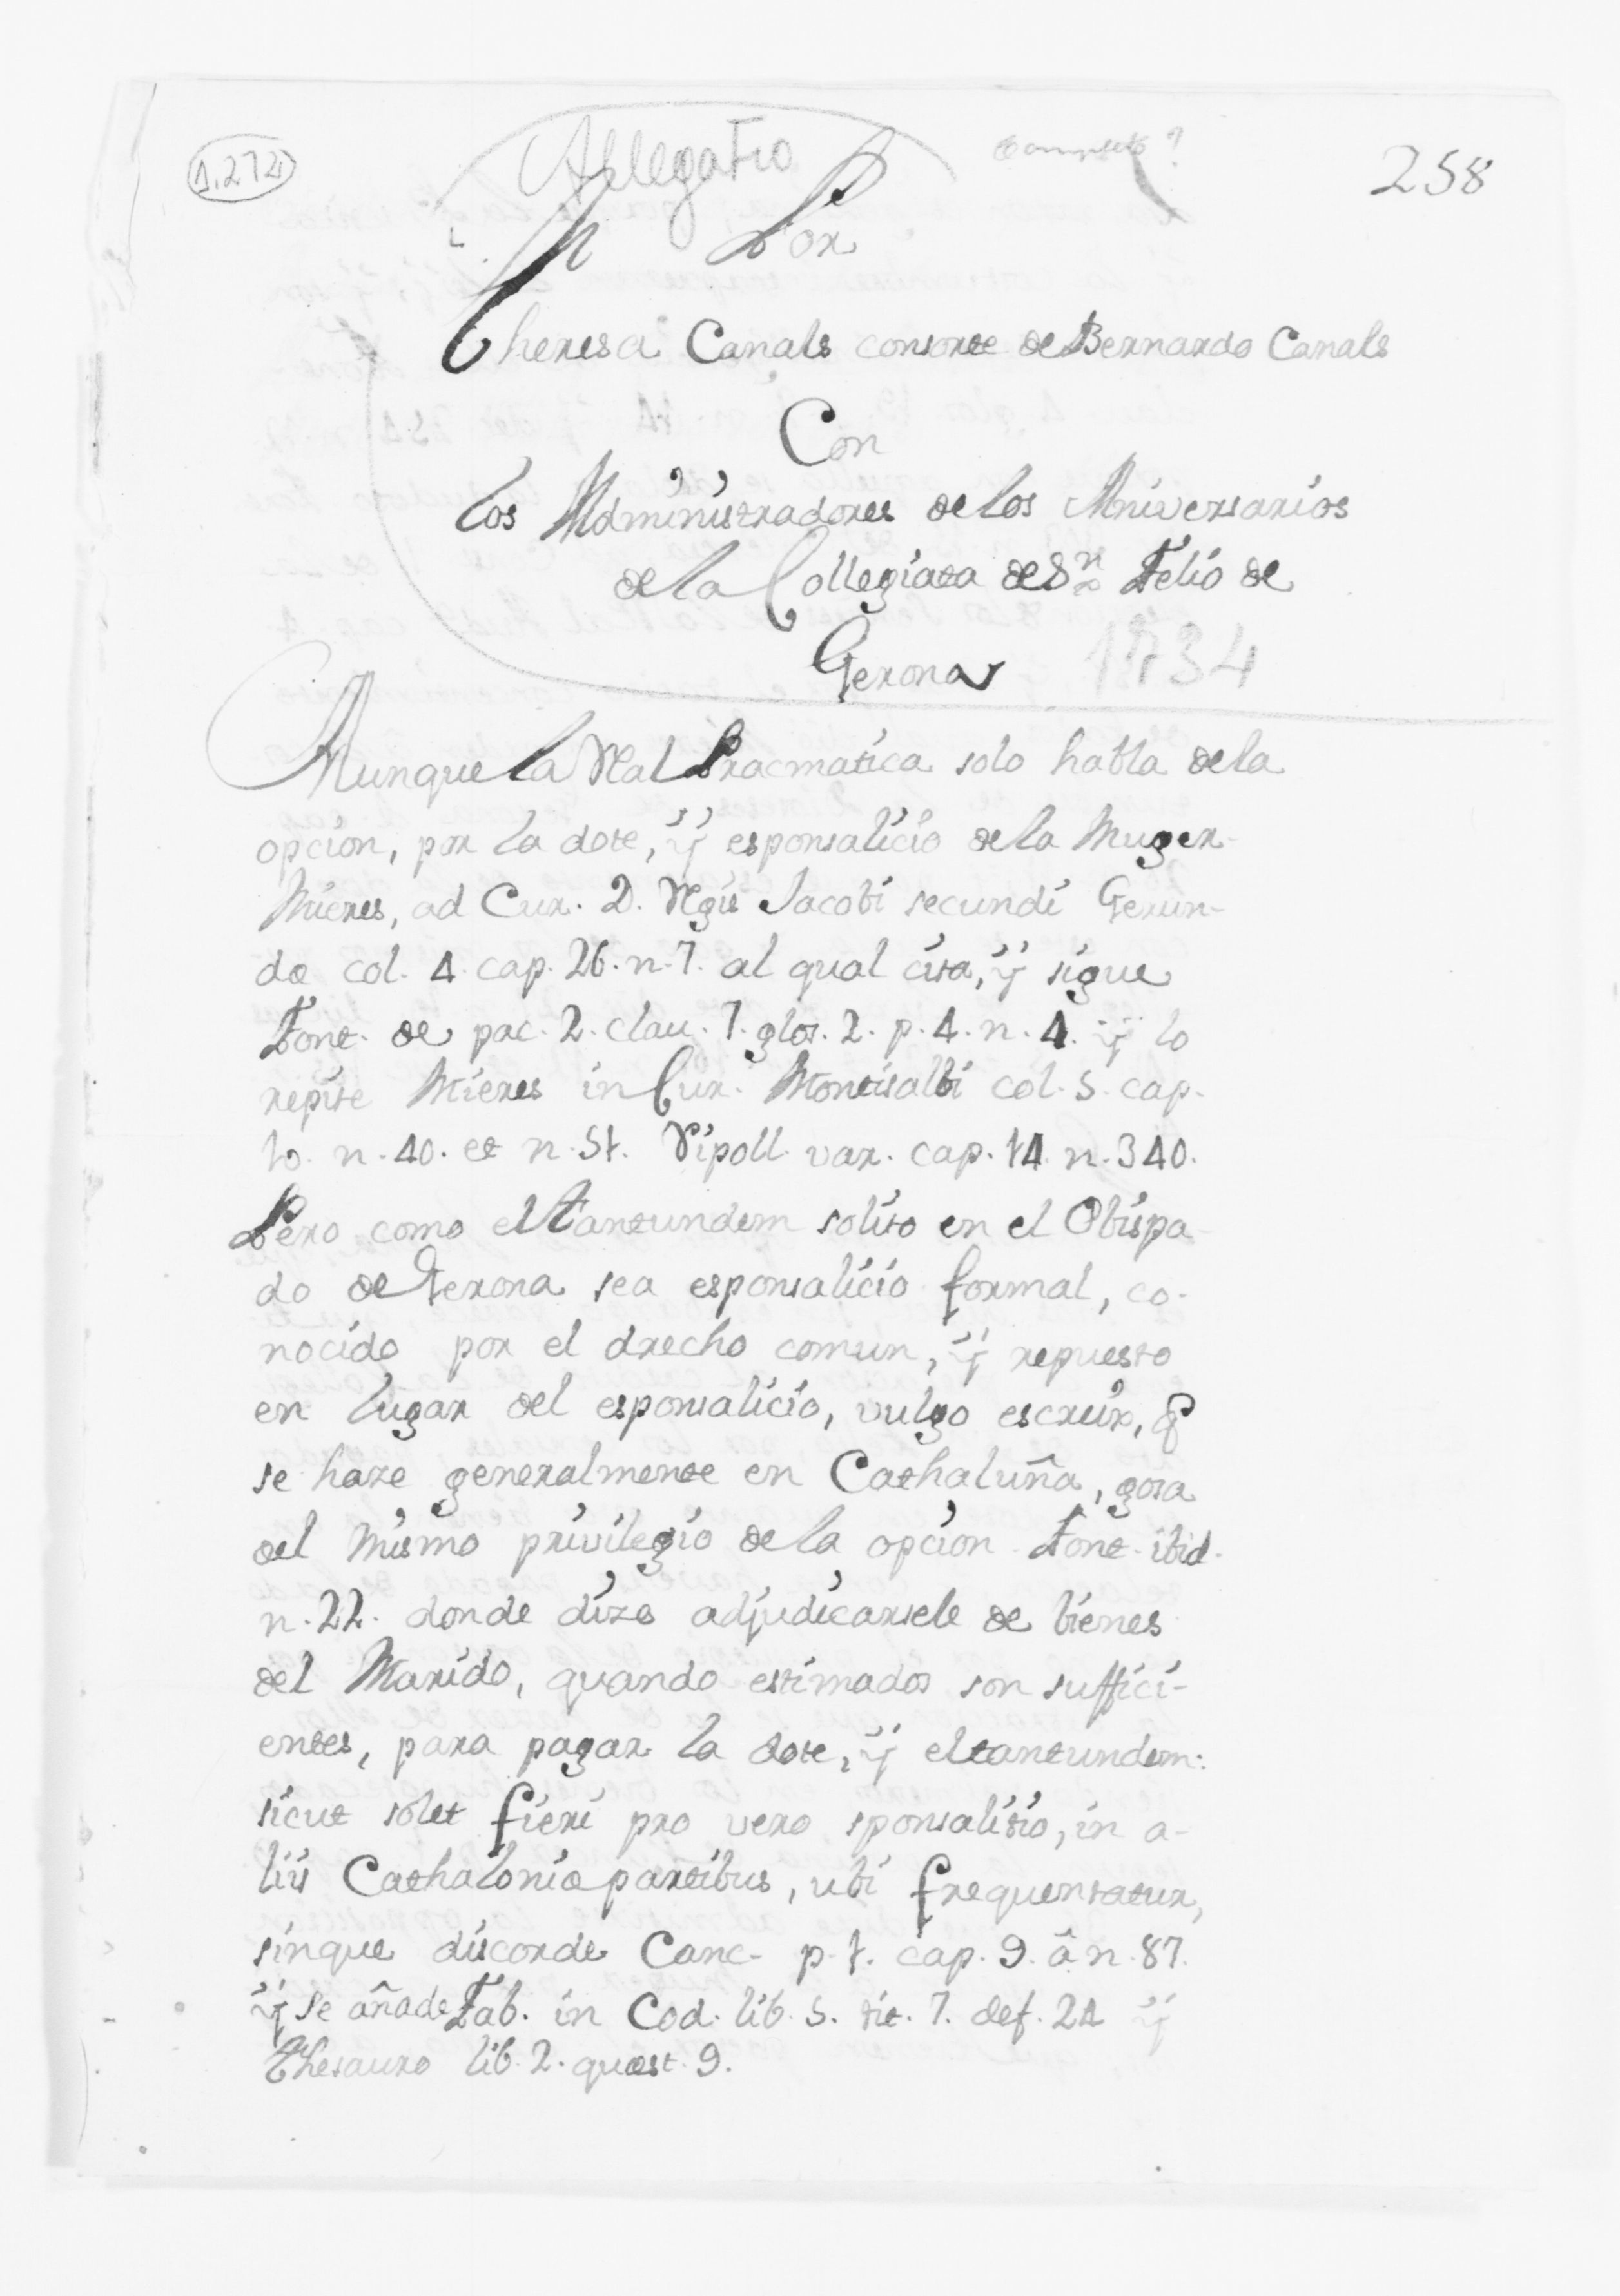 1.272
Allegatio
258
Por
Theresa Canals consorte de Bernardo Canals
Con
los Administradores de los Aniversarios
de la Collegiata de Sn Felio de
Gerona
1734
Aunque la Rl Pracmatica solo habla de la
opcion, por la dote, ÿ esponsalicio de la Muger
Mieres, ad Cur. D. Regis Jacobi secundi Gerun-
dæ col. 4. cap. 26. n. 7. al qual cita, ÿ sigue
Font. de pac. 2. clau. 7. glos. 2. p. 4. n. 4. ÿ lo
repite Mieres in Cur. Montisalbi col. 5. cap.
10. n. 40. et n. 51. Ripoll. var. cap. 14. n. 340.
Pero como el tantundem solito en el Obispa-
do de Gerona sea esponsalicio formal, co-
nocido por el drecho comun, ÿ repuesto
en lugar del esponsalicio, vulgo escreix, q
se haze generalmente en Cathaluña, goza
del mismo privilegio de la opcion Font. ibid.
n. 22. donde dize adjudicarsele de bienes
del Marido, quando estimados son suffici-
entes, para pagar la dote, ÿ el tantundem:
sicut solet fieri pro vero sponsalitio, in a-
liis Cathaloniæ partibus, ubi frequentatur,
sinque discorde Canc. p. 1. cap. 9. â n. 87.
ÿ se añade Fab. in Cod. lib. 5. tit. 7. def. 24 ÿ
Thesauro lib. 2. quæst. 9.